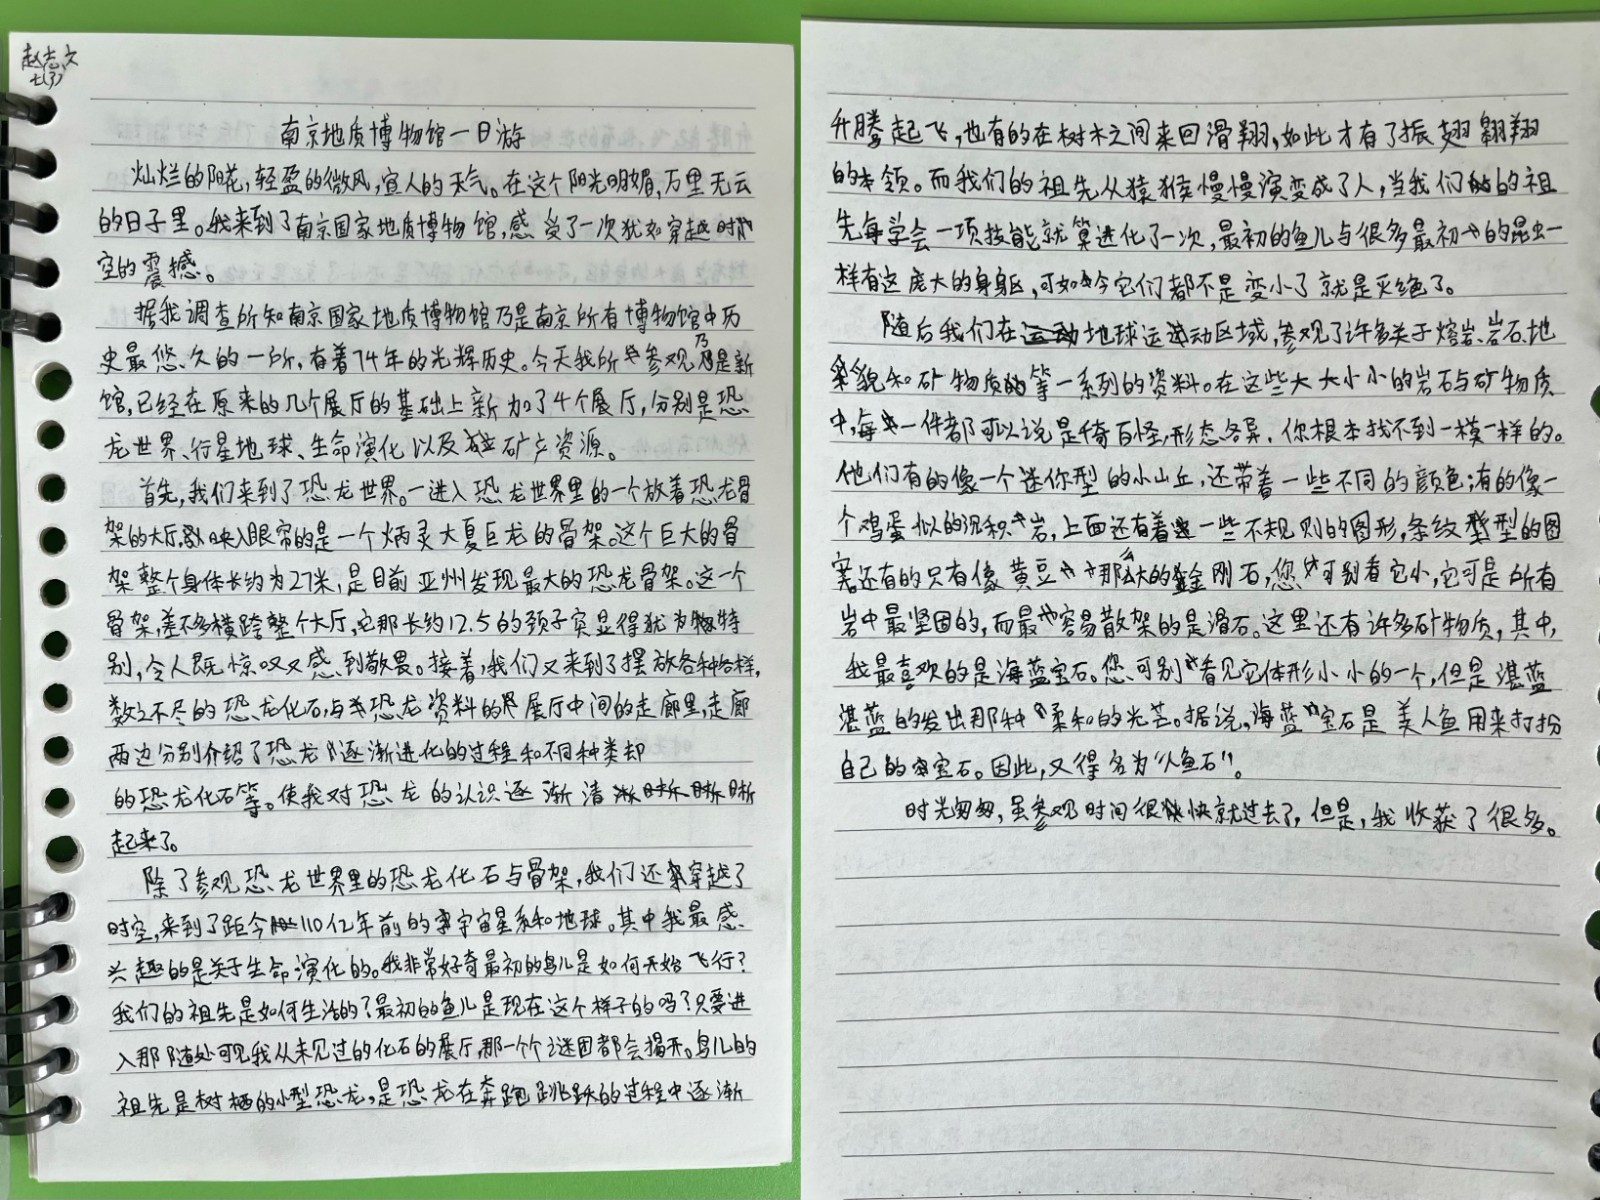 赵志文
七(3)
南京地质博物馆一日游
灿烂的阳花,轻盈的微风,宜人的天气。在这个阳光明媚,万里无云
的日子里。我来到了南京国家地质博物馆,感受了一次犹如穿越时
空的震撼。
据我调查所知南京国家地质博物馆乃是南京所有博物馆中历
史最悠久的一所,有着74年的光辉历史。今天我所参观乃是新
馆,已经在原来的几个展厅的基础上新加了4个展厅,分别是恐
龙世界、行星地球、生命演化以及矿产资源。
首先,我们来到了恐龙世界。一进入恐龙世界里的一个放着恐龙骨
架的大厅,映入眼帘的是一个炳灵大夏巨龙的骨架。这个巨大的骨
架整个身体长约为27米,是目前亚州发现最大的恐龙骨架。这一个
骨架,差不多横跨整个大厅,它那长约12.5的颈子突显得犹为特
别,令人既惊叹又感到敬畏。接着,我们又来到了摆放各种各样,
数之不尽的恐龙化石,与恐龙资料的展厅中间的走廊里,走廊
两边分别介绍了恐龙逐渐进化的过程和不同种类却
的恐龙化石等。使我对恐龙的认识逐渐清晰
起来了。
除了参观恐龙世界里的恐龙化石与骨架,我们还穿越了
时空,来到了距今110亿年前的宇宙星系和地球。其中我最感
兴趣的是关于生命演化的。我非常好奇最初的鸟儿是如何开始飞行?
我们的祖先是如何生活的?最初的鱼儿是现在这个样子的吗?只要进
入那随处可见我从未见过的化石的展厅,那一个个谜团都会揭开。鸟儿的
祖先是树栖的小型恐龙,是恐龙在奔跑跳跃的过程中逐渐
升腾起飞,也有的在树木之间来回滑翔,如此才有了振翅翱翔
的本领。而我们的祖先从猿猴慢慢演变成了人,当我们的祖
先每学会一项技能就算进化了一次,最初的鱼儿与很多最初的昆虫一
样有这庞大的身躯,可如今它们都不是变小了就是灭绝了。
随后我们在地球运动区域,参观了许多关于熔岩、岩石、地
貌和矿物质等一系列的资料。在这些大大小小的岩石与矿物质
中,每一件都可以说是千奇百怪,形态各异,你根本找不到一模一样的。
他们有的像一个迷你型的小山丘,还带着一些不同的颜色;有的像一
个鸡蛋似的沉积岩,上面还有着一些不规则的图形,条纹型的图
案还有的只有像黄豆那么大的金刚石,您可别看它小,它可是所有
岩中最坚固的,而最容易散架的是滑石。这里还有许多矿物质,其中,
我最喜欢的是海蓝宝石。您可别看见它体形小小的一个,但是湛蓝
湛蓝的发出那种柔和的光芒。据说,海蓝宝石是美人鱼用来打扮
自己的宝石。因此,又得名为“人鱼石”。
时光匆匆,虽参观时间很快就过去了,但是,我收获了很多。